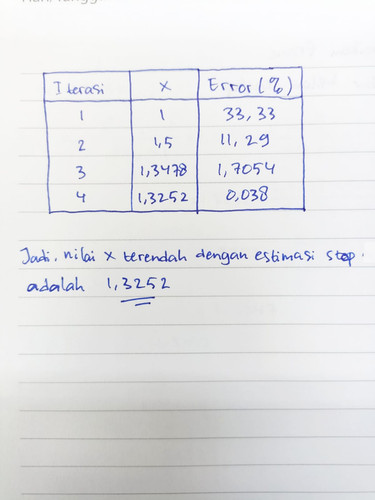 Iterasi x Error (%)
1 1 33,33
2 1,5 11,29
3 1,3478 1,7054
4 1,3252 0,038
Jadi, nilai x terendah dengan estimasi stop.
adalah 1,3252